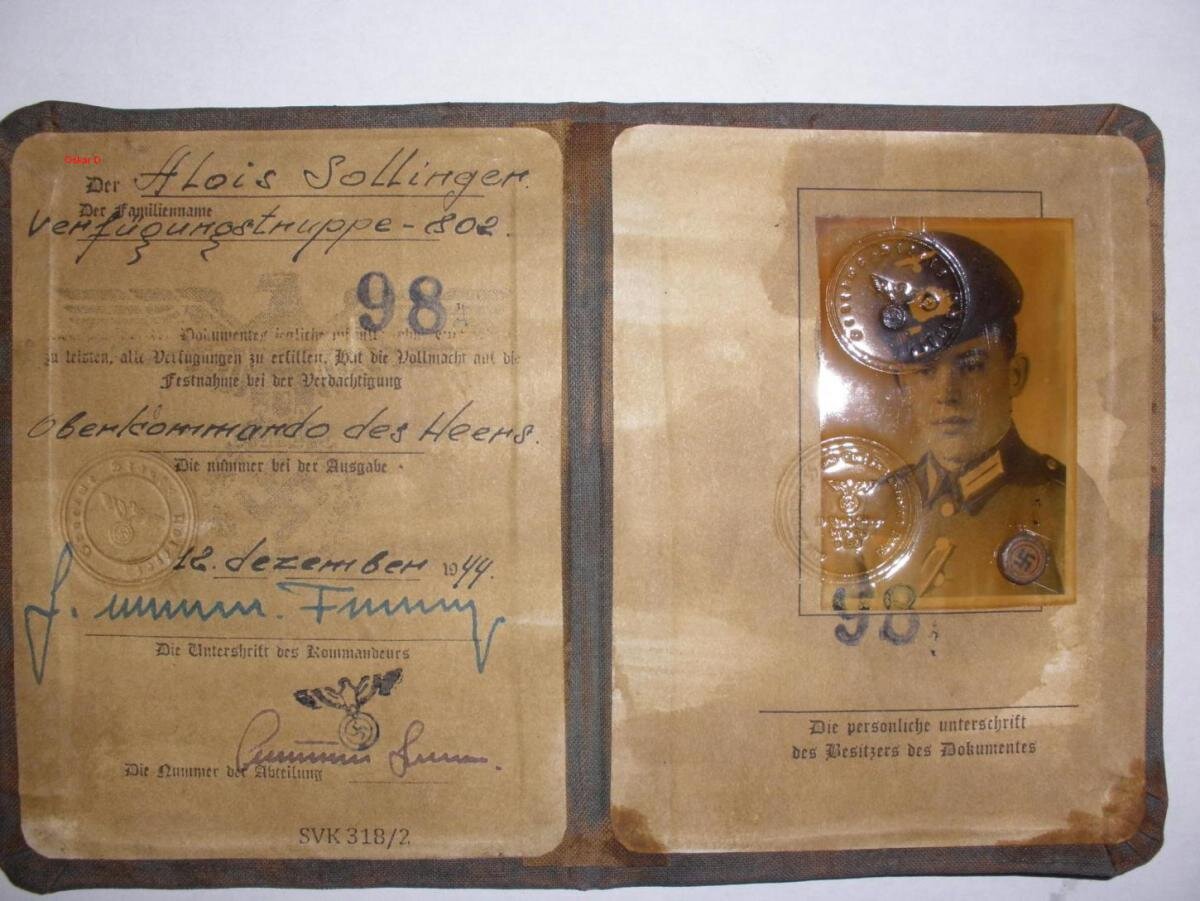 Oskar D
Der Alois Sollinger.
Der Familienname
Verfügungstruppe-802.
98
Dokumentes
zu leisten, alle Verfugungen zu erfillen. Hat die Vollmacht auf die
Festnahme bei der Verdachtigung
Oberkommando des Heers.
Die nummer bei der Ausgabe
12. dezember 1944.
Die Untershrift des Kommandeurs
Die Nummer der Abteilung
SVK 318/2
98
Die personliche unterschrift
des Besitzers des Dokumentes